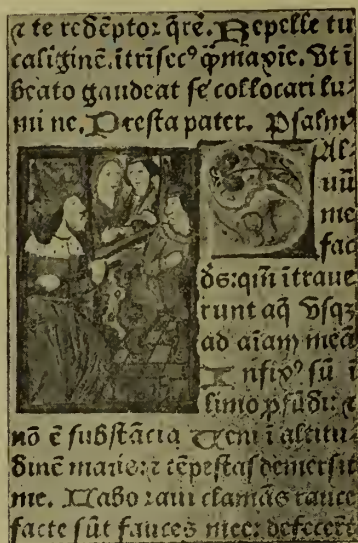 ⁊ te redēptoꝛ q̄re. Repelle tu
caliginē. ītrīsecꝰ q̄ꝫ maxīe. Vt ī
beato gaudeat se collocari lu-
mi ne. Presta pater. Psalmꝰ
SAl-
uū
me
fac
ds: qm̄ ītraue
runt aq̄ vsqꝫ
ad aīam meā
Infixꝰ sū ī
limo ꝓfūdi: ⁊
nō ē substācia Ueni ī altitu-
dinē maris: ⁊ tēpestas demersit
me. Laboꝛaui clamās rauce
facte sūt fauces mee: defecerūt